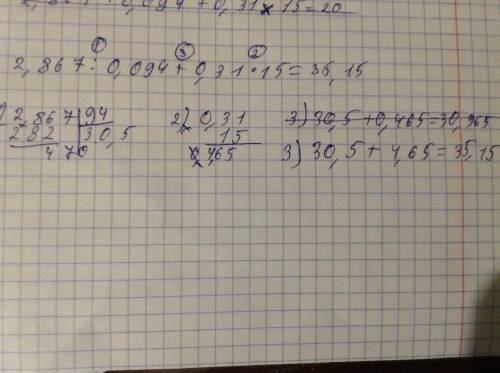 0,094 + 0,31 × 15 = 20
① ③ ②
2,867 : 0,094 + 0,31 · 15 = 35,15
1) 2,867 | 94
282 | 30,5
470
2) 0,31
× 15
4,65
3) 30,5 + 0,465 = 30,965
3) 30,5 + 4,65 = 35,15